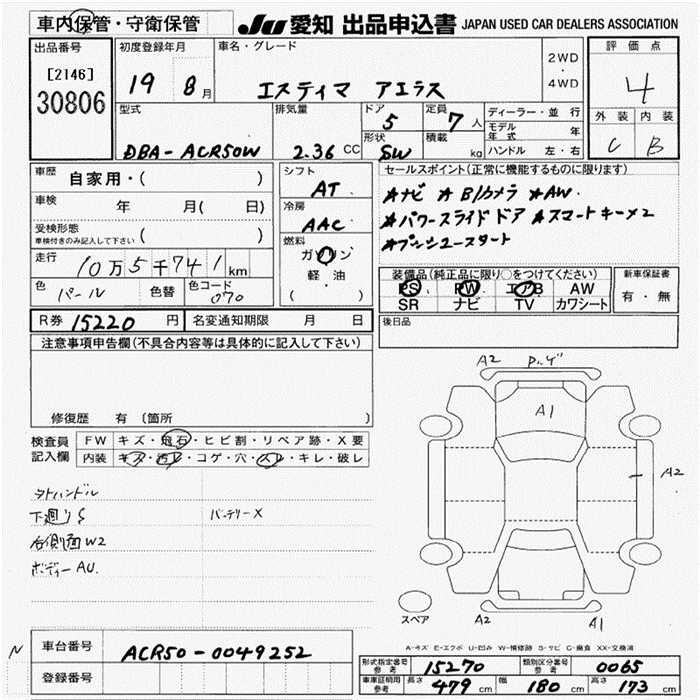 車内保管・守衛保管
JU 愛知 出品申込書 JAPAN USED CAR DEALERS ASSOCIATION
出品番号
[2146]
30806
初度登録年月
19 8月
車名・グレード
エスティマ アエラス
2WD
・
4WD
評価点
4
外装 内装
C B
型式
DBA-ACR50W
排気量
2.36 CC
ドア
5
形状
SW
定員
7人
積載
kg
ディーラー・並行
モデル年式 年
ハンドル 左・右
車歴
自家用・( )
車検 年 月( 日)
受検形態
車検付きのみ記入して下さい ( )
走行
10万5千741km
色 パール 色替 色コード 070
シフト
AT
冷房
AAC
燃料
ガソリン
軽・油
( )
セールスポイント(正常に機能するものに限ります)
★ナビ ★Bカメラ ★AW
★パワースライドドア ★スマートキー×2
★プッシュスタート
装備品(純正品に限り○をつけてください)
PS PW エアB AW
SR ナビ TV カワシート
新車保証書
有・無
R券 15220円 名変通知期限 月 日
後日品
注意事項申告欄(不具合内容等は具体的に記入して下さい)
修復歴 有 (箇所 )
検査員記入欄
FW キズ・飛石・ヒビ割・リペア跡・X要
内装 キズ・汚レ・コゲ・穴・スレ・キレ・破レ
タトハンドル
下廻りS バッテリーX
右側面W2
ボディーAU.
A2
A1
A2
スペア
A2
A1
A-キズ E-エクボ U-凹み W-補修跡 S-サビ C-腐食 XX-交換済
N
車台番号 ACR50-0049252
登録番号
形式指定番号 参考 15270 類別区分番号 参考 0065
車庫証明用 参考 長さ 479 cm 幅 180 cm 高さ 173 cm